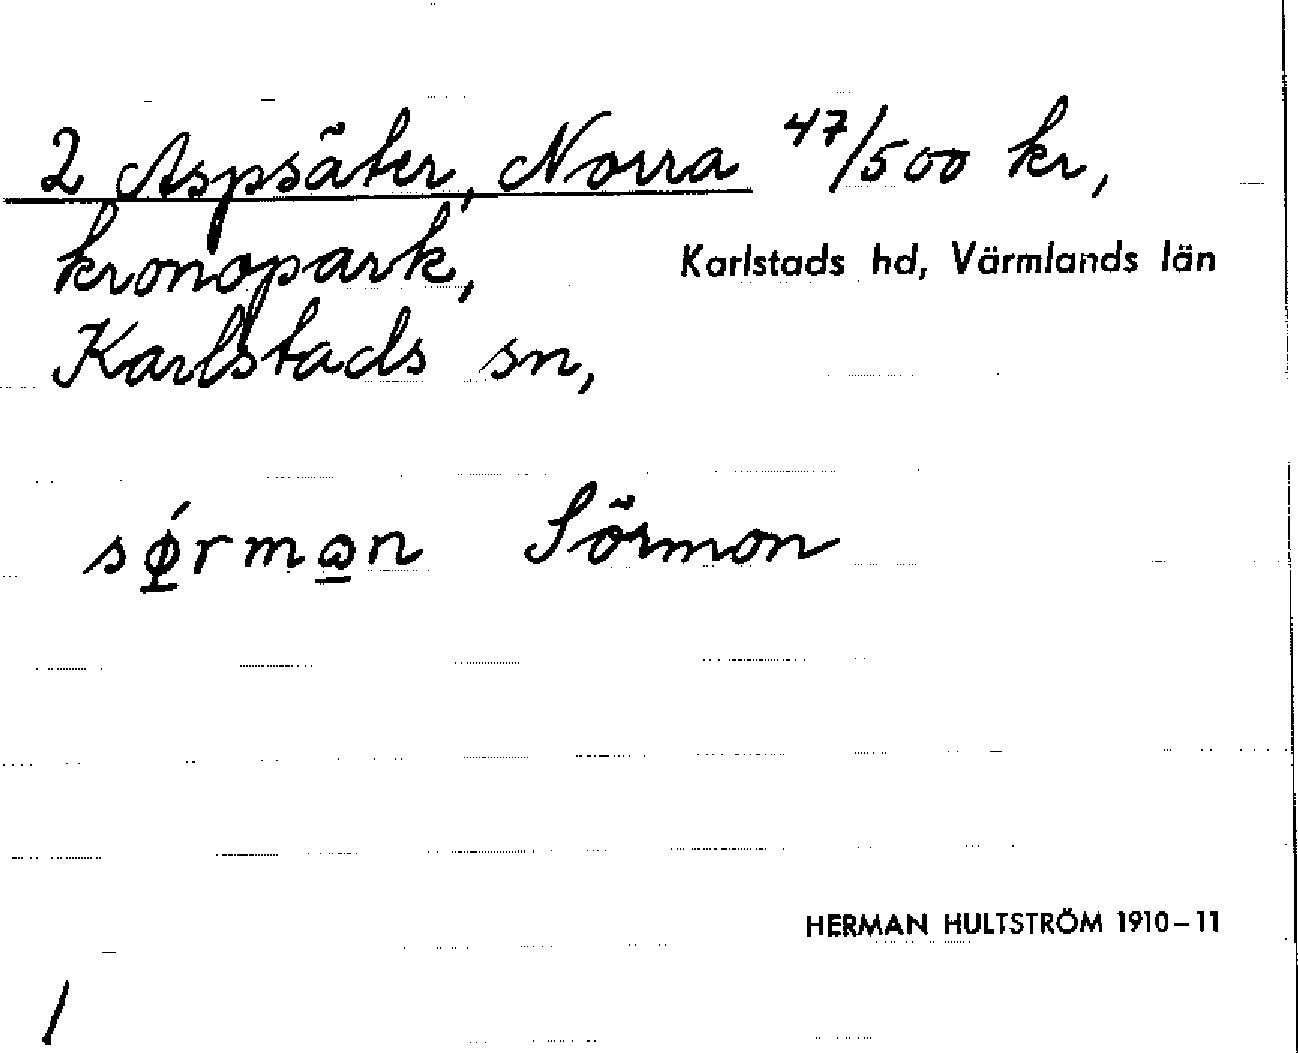 2 Aspsäter, Norra 47/500 kr,
kronopark, Karlstads hd, Värmlands län
Karlstads sn,
sǿ̠rmꞷ̠n Sörmon
HERMAN HULTSTRÖM 1910-11
/